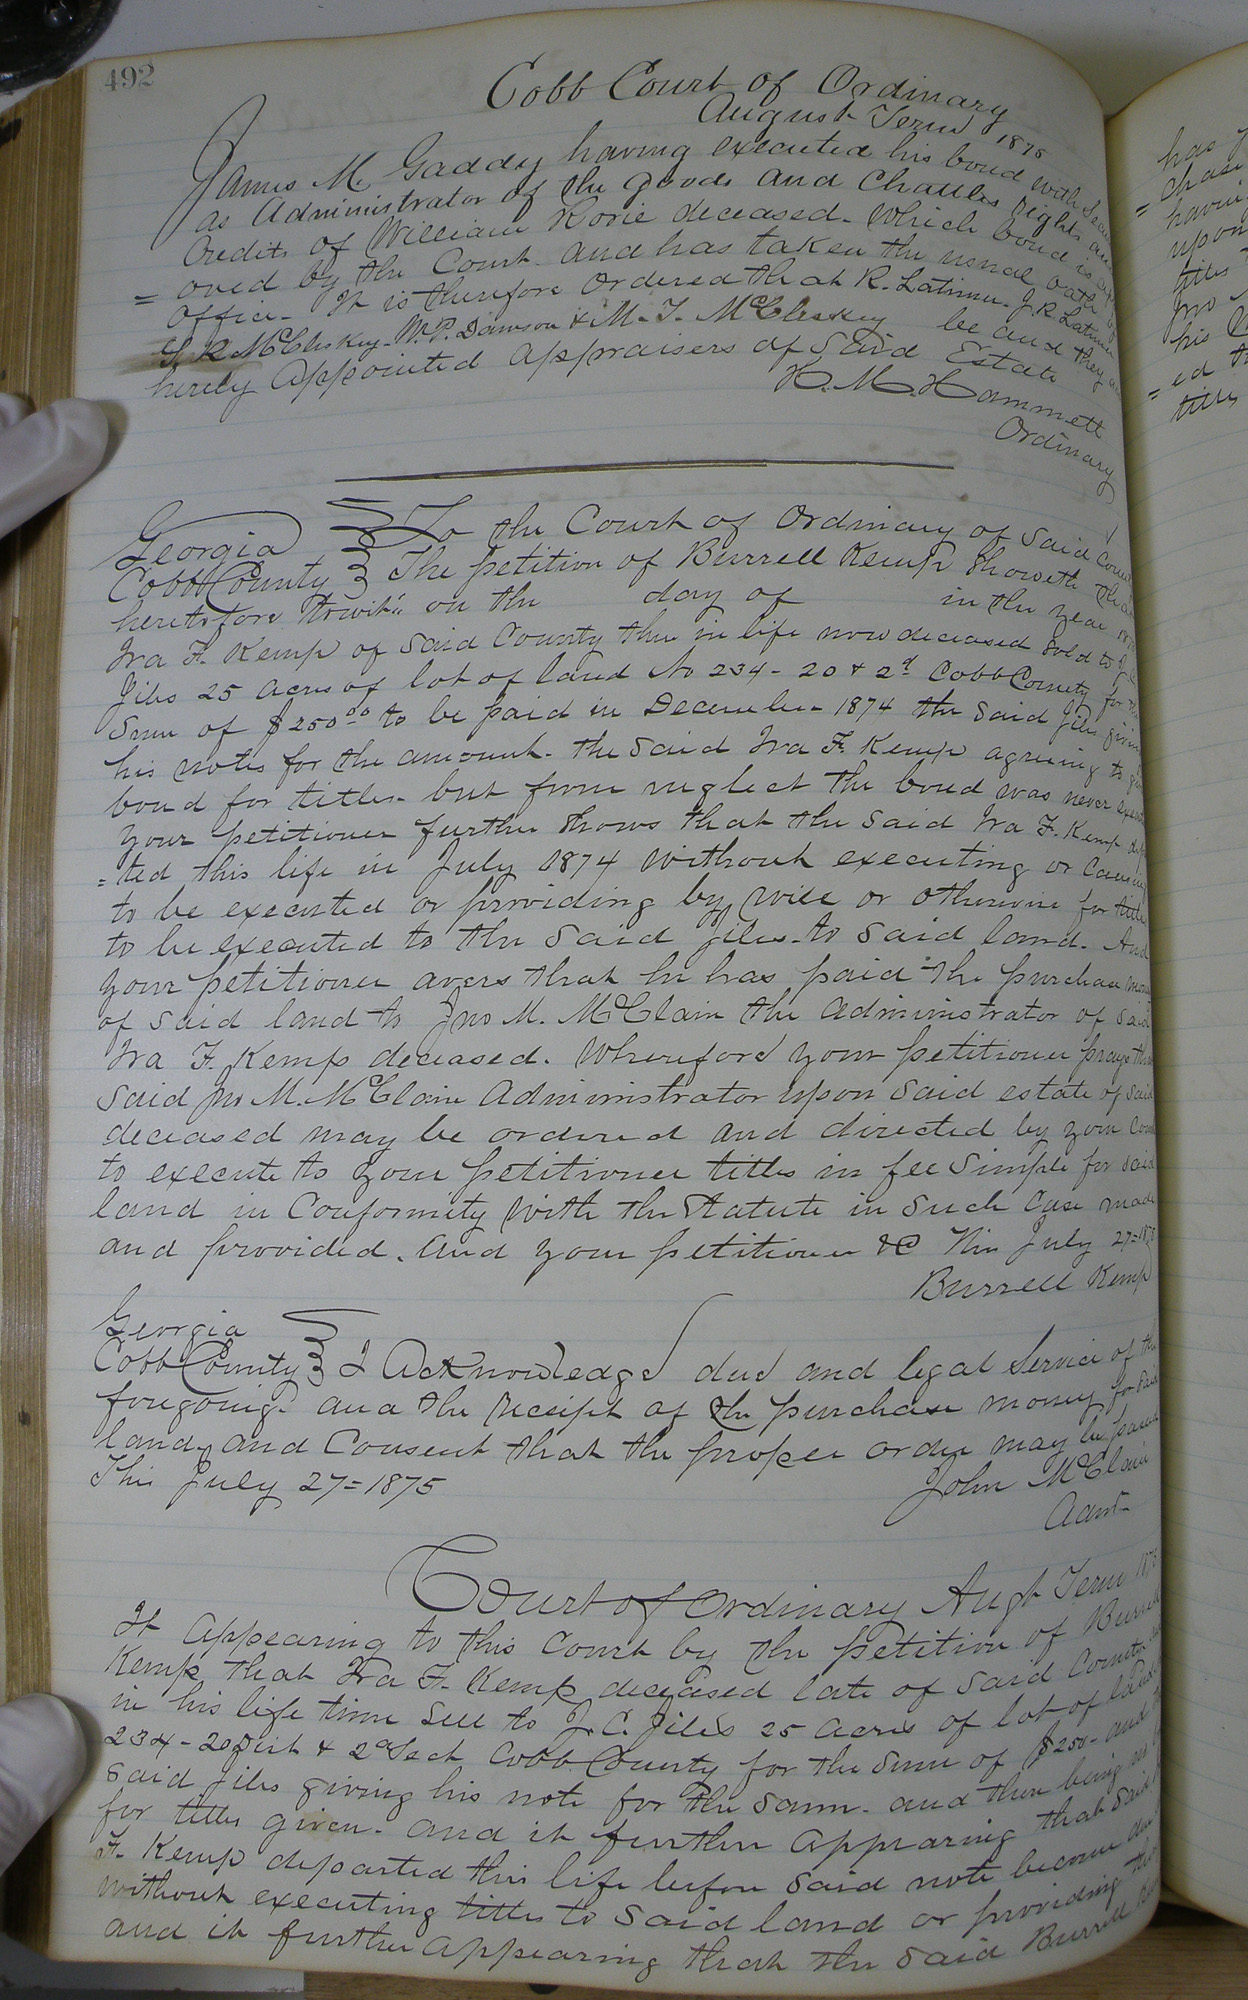 492
Cobb Court of Ordinary
August Term 1875
James M. Gaddy having executed his bond with
as Administrator of the goods and Chattles Rights and
Credits of William Rorie deceased. Which bond is
= oved by the Court and has taken the usual oath
office. It is therefore Ordered that R. Latimer. J. R. Latimer
G. R. McCleskey. W. P. Dawson & M. J. McCleskey be and they are
hereby appointed appraisers of Said Estate
H. M. Hammett
Ordinary
Georgia To the Court of Ordinary of Said
Cobb County The petition of Burrell Kemp Showeth that
heretofore towit: on the day of in the year
Ira F. Kemp of Said County then in life now deceased Sold to
Jiles 25 acres of lot of land No 234 - 20 & 2d Cobb County for the
Sum of $250 00 to be paid in December 1874 the Said Jiles giving
his notes for the amount. the Said Ira F. Kemp agreeing to
bond for titles. but from neglect the bond was never
your petitioner further Shows that the Said Ira F. Kemp
= ted this life in July 1874 without executing or causing
to be executed or providing by will or otherwise for titles
to be executed to the Said Jiles. to Said land. And
your petitioner avers that he has paid the purchase money
of Said land to Jno M. McClain the Administrator of Said
Ira F. Kemp deceased. Wherefore your petitioner prays that
Said Jno M. McClain Administrator upon Said estate of Said
deceased may be ordered and directed by your Court
to execute to your petitioner titles in fee Simple for Said
land in Conformity with the Statute in Such Case made
and provided. and your petitioner &c This July 27=
Burrell Kemp
Georgia
Cobb County I Acknowledge due and legal Service of the
foregoing. and the receipt of the purchase money for Said
land, and Consent that the proper order may be passed
This July 27=1875 John McClain
Admr
Court of Ordinary Augt Term
It Appearing to this Court by the petition of Burrell
Kemp that Ira F. Kemp deceased late of Said County
in his life time Sell to J. C. Jiles 25 acres of lot of land
234 - 20 Dist & 2d Sect Cobb County for the Sum of $250 - and
Said Jiles giving his note for the Same. and there being
for titles given. and it further appearing that Said
F. Kemp departed this life before Said note became due
without executing titles to Said land or providing
and it further appearing that the Said Burrell